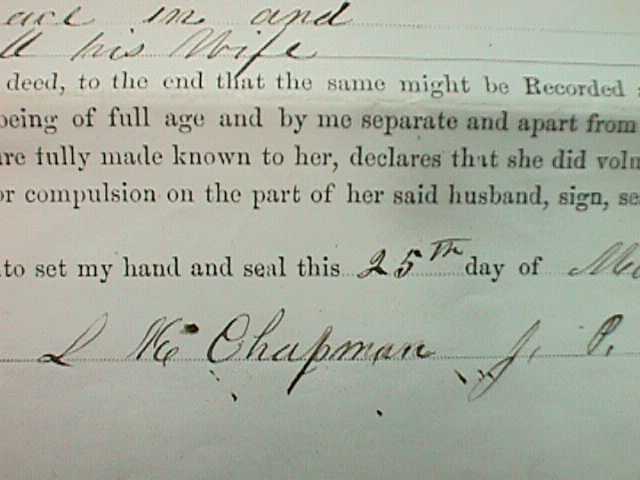 in and
his Wife
deed, to the end that the same might be Recorded
being of full age and by me separate and apart from
are fully made known to her, declares that she did volu
or compulsion on the part of her said husband, sign, sea
to set my hand and seal this 25th day of
Chapman J. P.